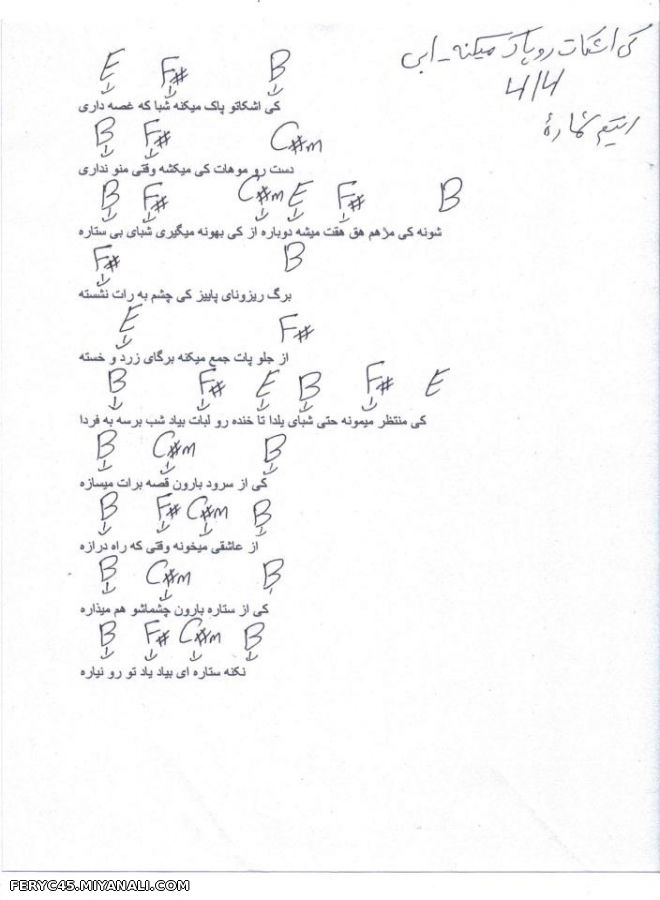 کی اشکات رو پاک میکنه - ابی
4/4
ریتم شماره
E F# B
کی اشکاتو پاک میکنه شبا که غصه داری
B F# C#m
دست رو موهات کی میکشه وقتی منو نداری
B F# C#m E F# B
شونه کی مژهم هق هقت میشه دوباره از کی بهونه میگیری شبای بی ستاره
F# B
برگ ریزونای پاییز کی چشم به رات نشسته
E F#
از جلو پات جمع میکنه برگای زرد و خسته
B F# E B F# E
کی منتظر میمونه حتی شبای یلدا تا خنده رو لبات بیاد شب برسه به فردا
B C#m B
کی از سرود بارون قصه برات میسازه
B F# C#m B
از عاشقی میخونه وقتی که راه درازه
B C#m B
کی از ستاره بارون چشماشو هم میذاره
B F# C#m B
نکنه ستاره ای بیاد یاد تو رو نیاره
FERYC45.MIYANALI.COM